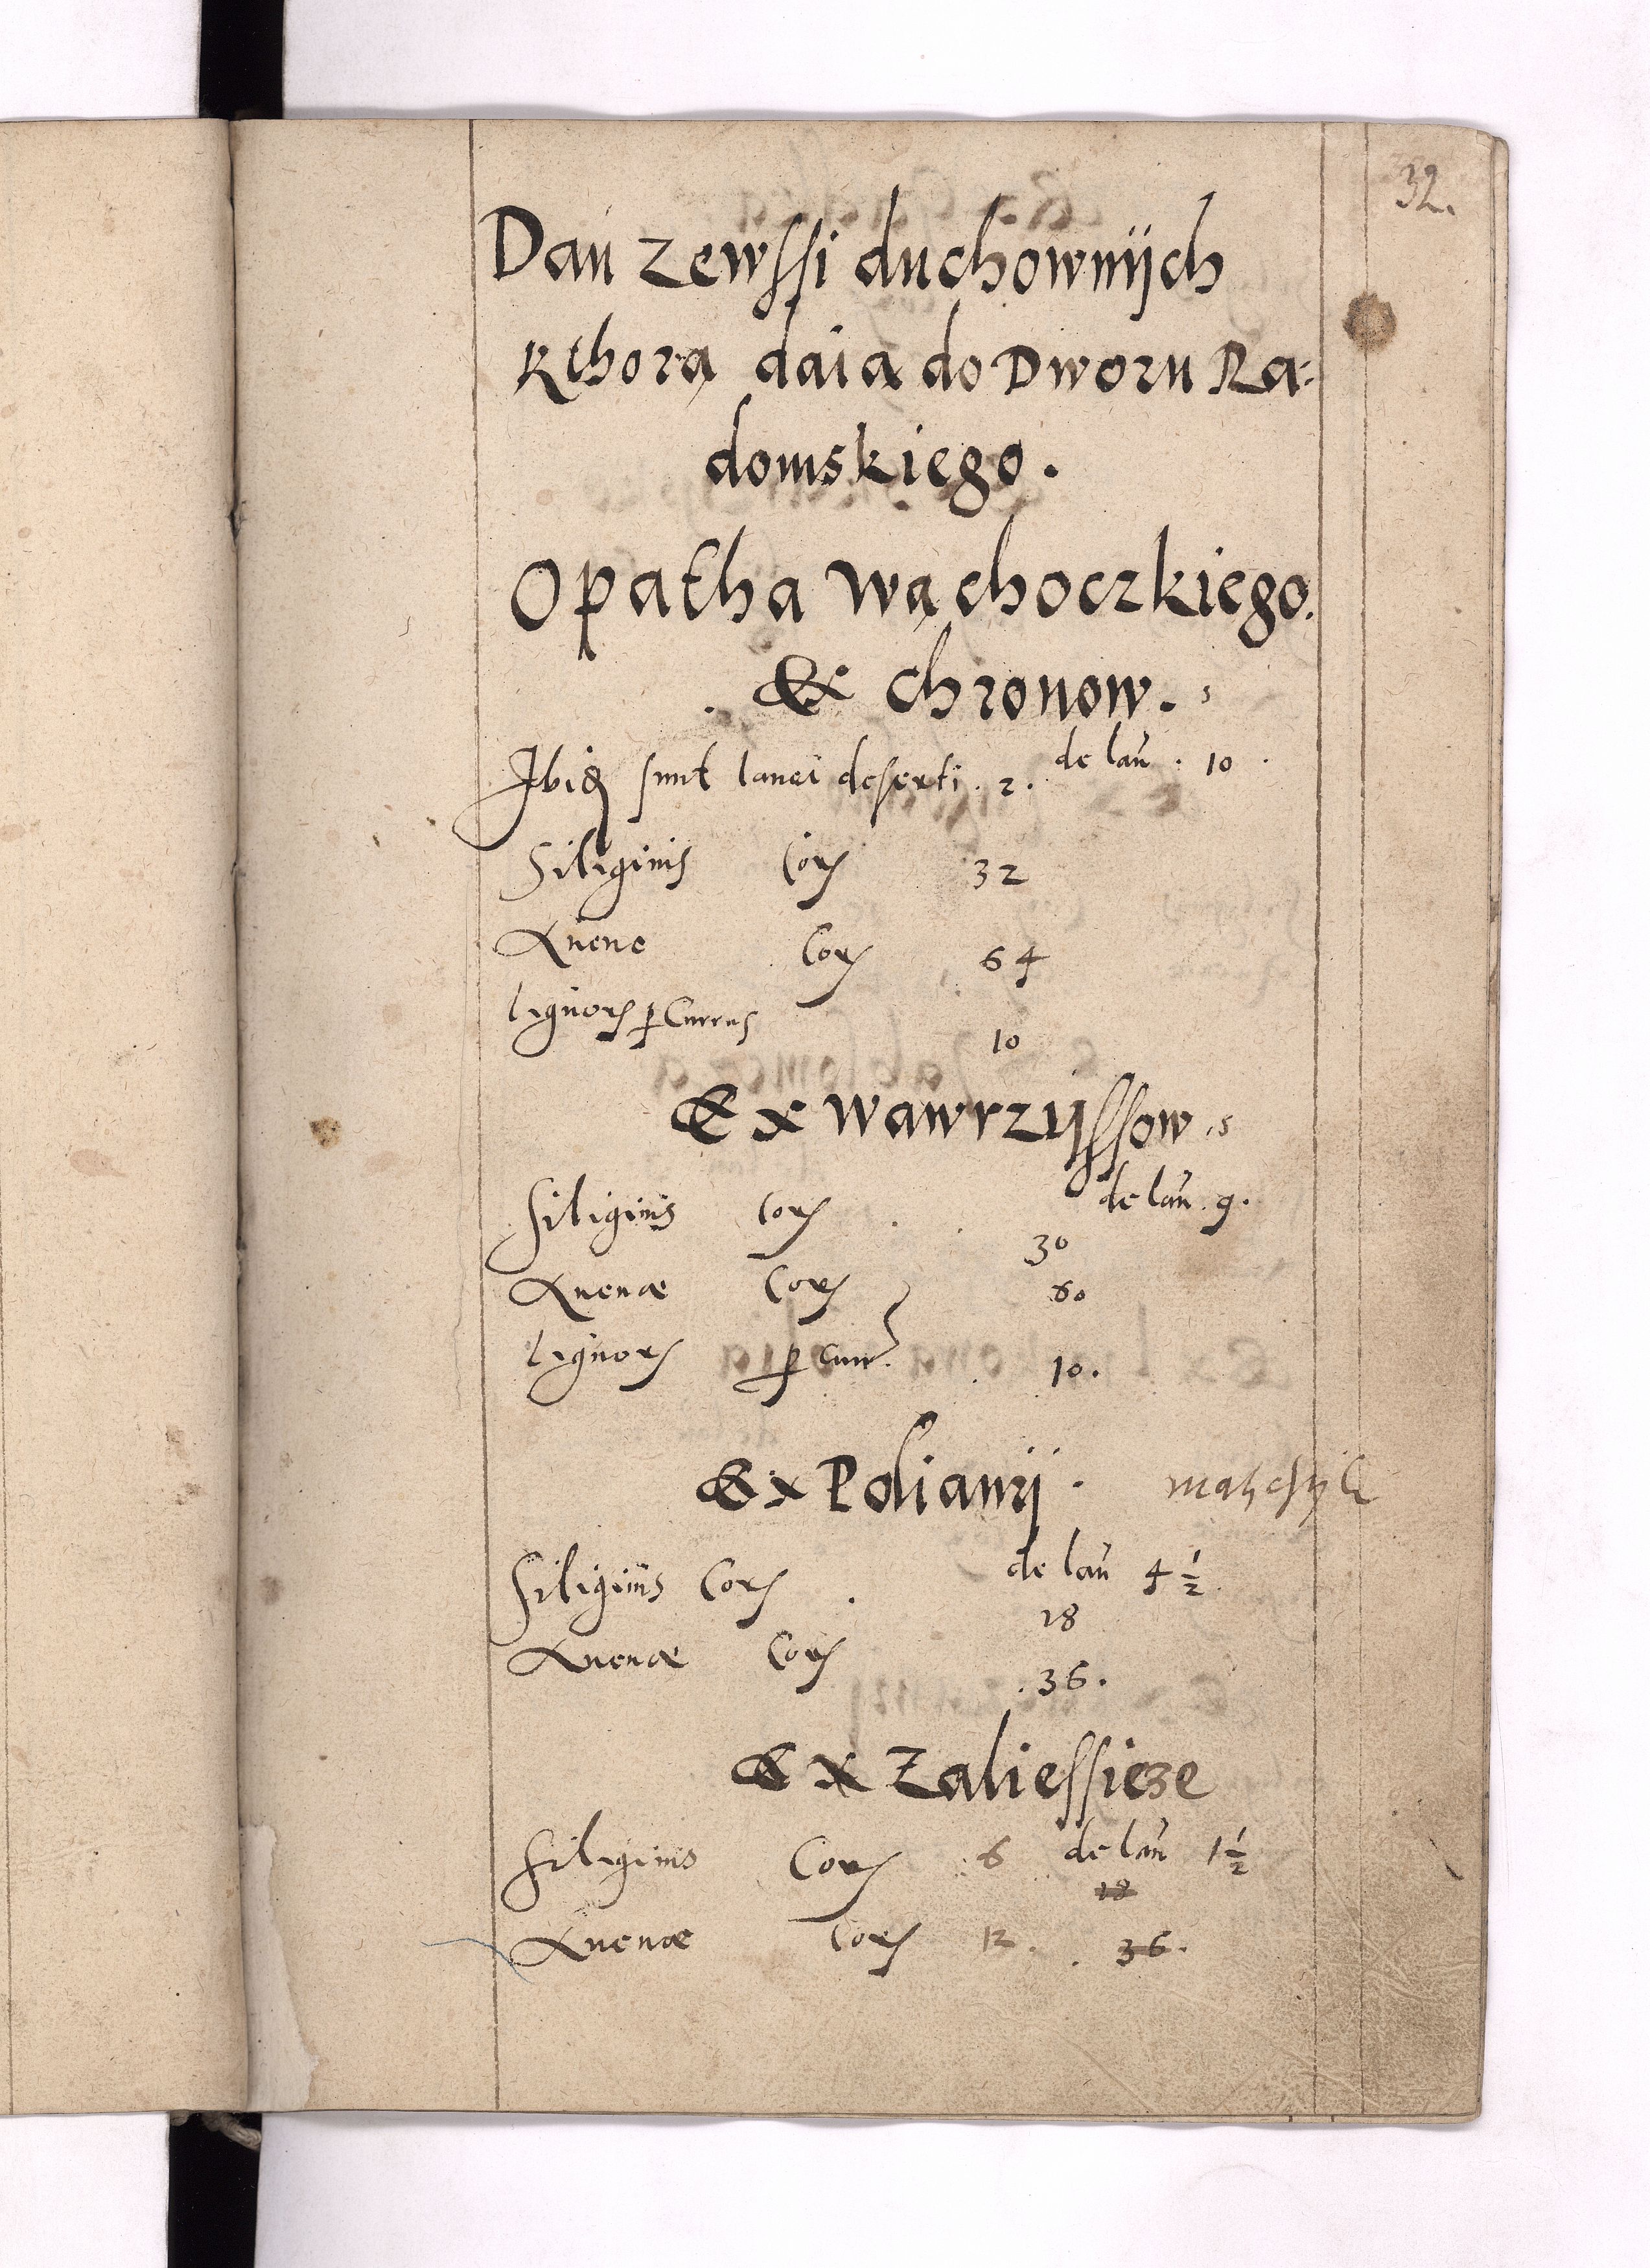 32.
Dan zewssi duchownijch
kthorą daią do Dworu Ra:
domskiego.
Opatha wąchoczkiego.
Ex Chronow.
Ibid sunt lanei deserti . 2. de lan . 10 .
Siliginis Cor 32
Auene Cor 64
lignor p Currus 10
Ex Wawrzijssow
de lan . 9.
Siliginis Cor 30
Auenæ Cor 60
lignor p Curr. 10.
Ex Polianij .
Siliginis Cor . de lan 4 1/2
18
Auenæ Cor . 36 .
Ex Zaliessicze
Siliginis Cor 6 de lan 1 1/2
18
Auenæ Cor 12 . . 36 .